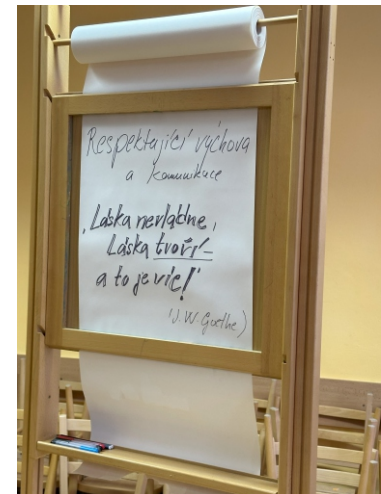 Respektující výchova
a komunikace
„Láska nevládne,
Láska tvoří –
a to je víc!“
(J. W. Goethe)